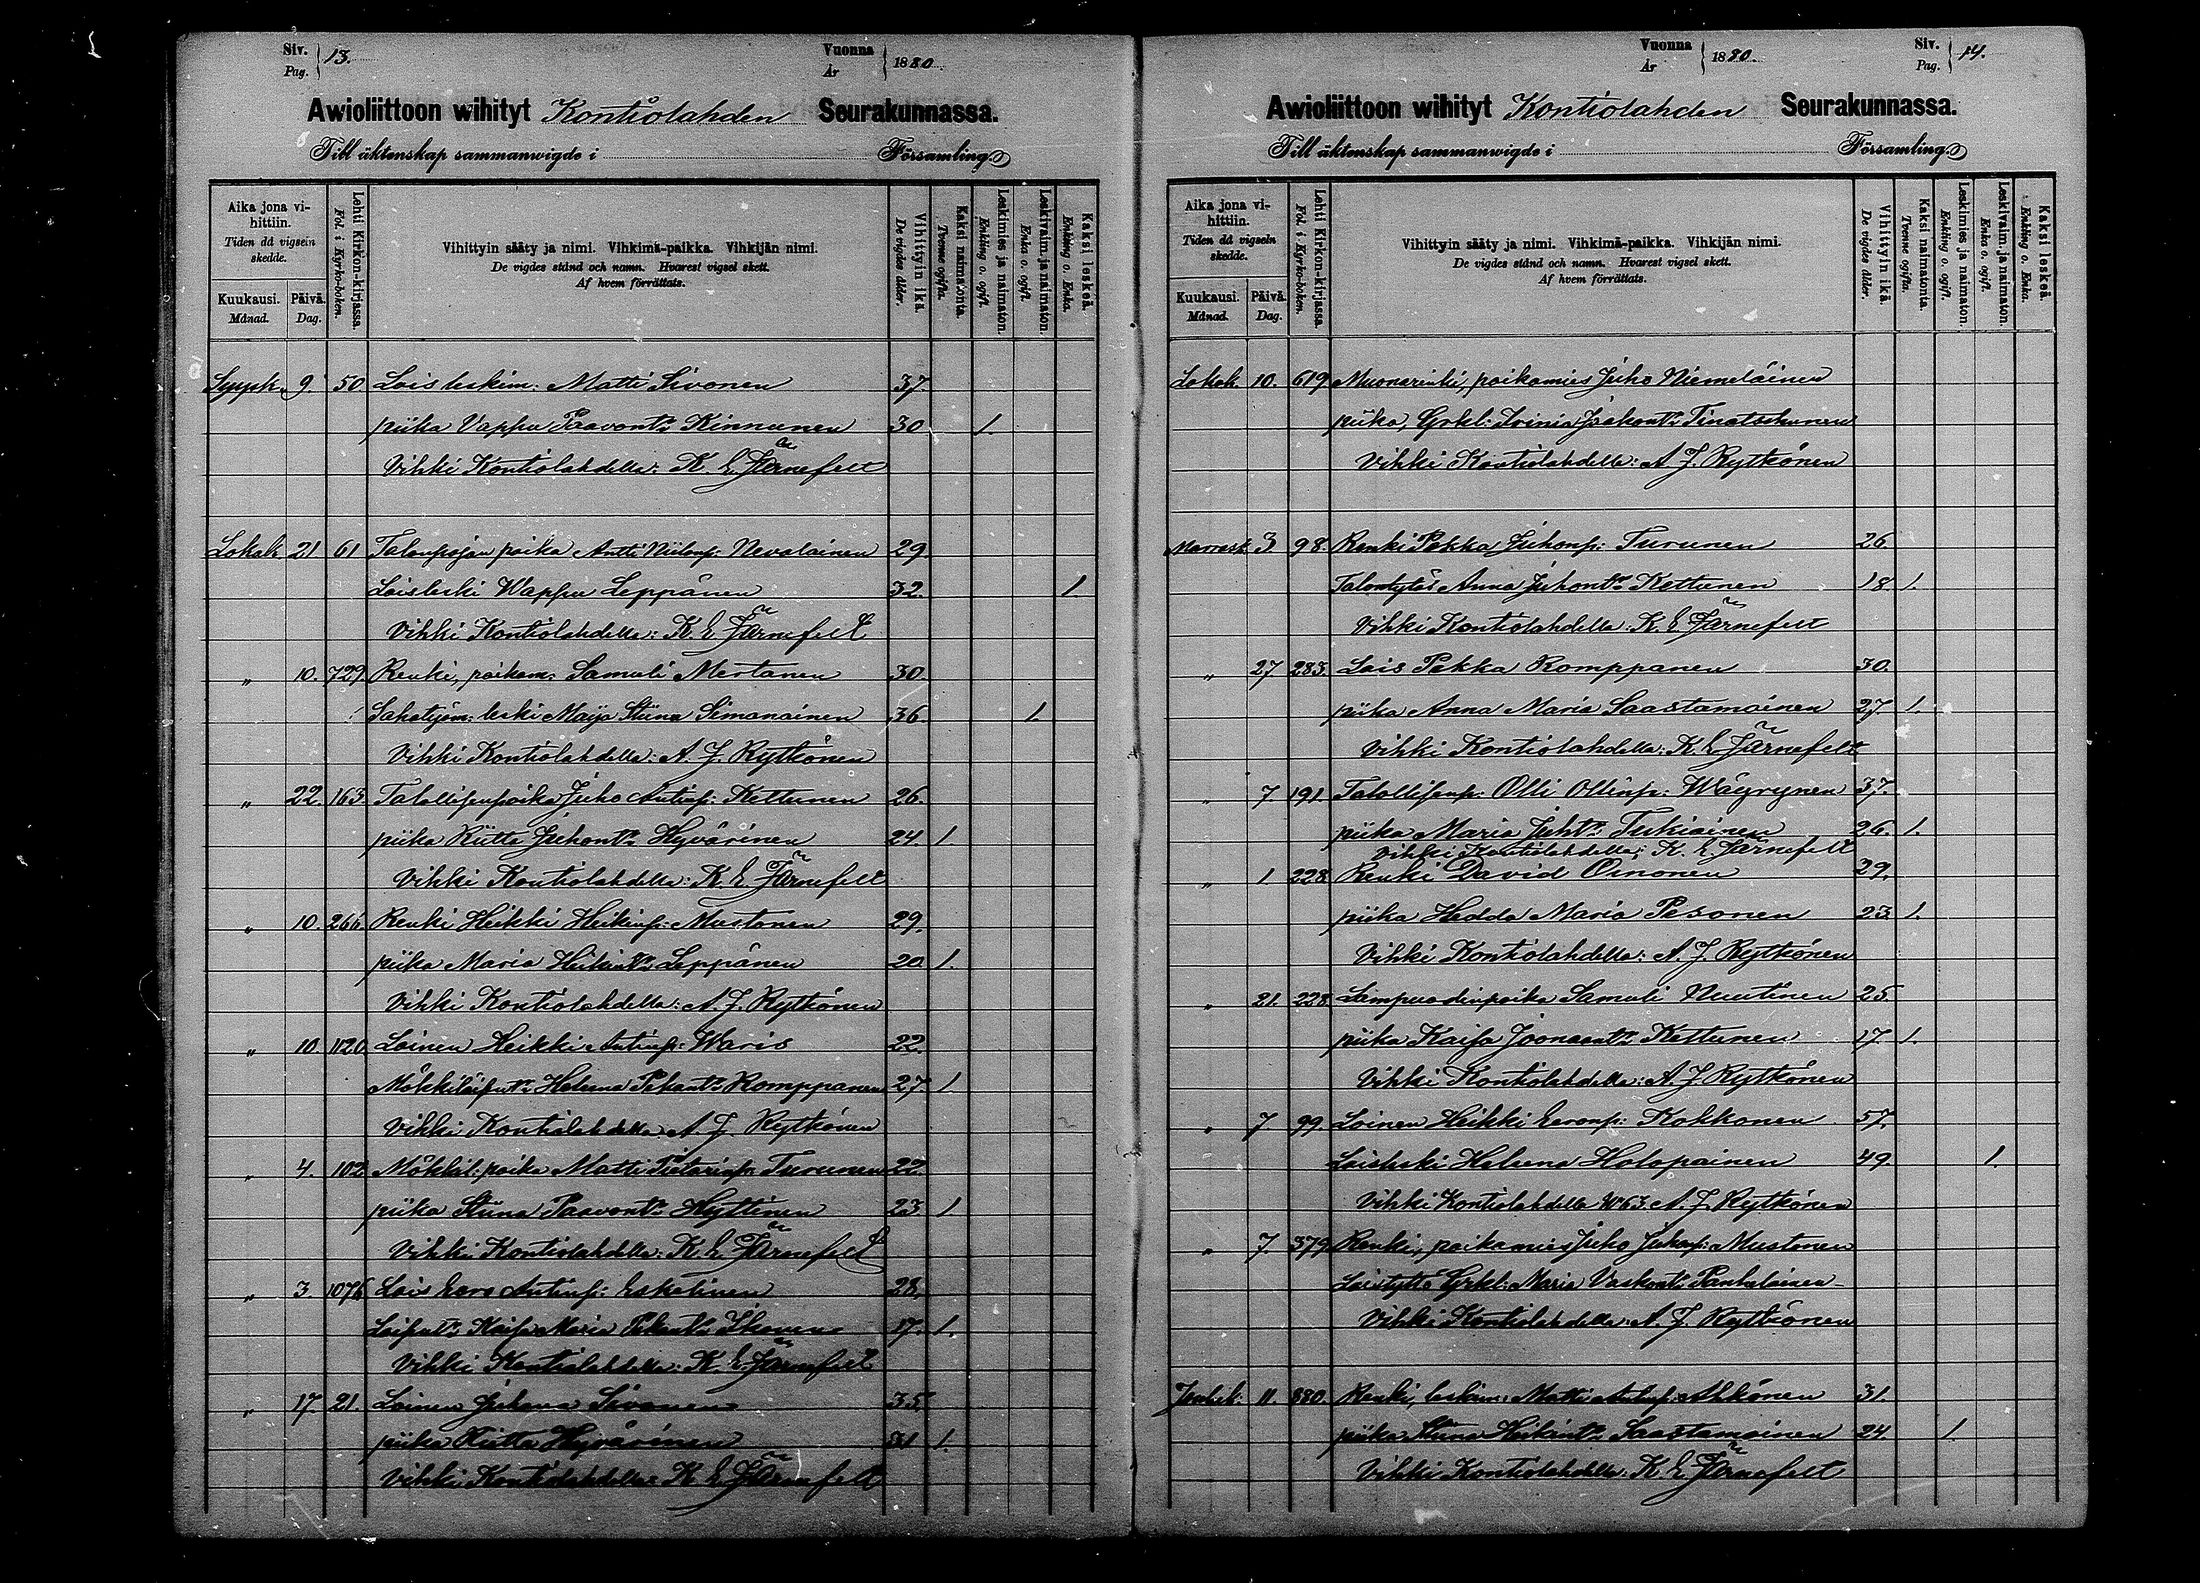 Siv. Pag. 13. Vuonna År 1880
Awioliittoon wihityt Kontiolahden Seurakunnassa.
Till äktenskap sammanwigde i Församling.
Aika jona vihittiin. Tiden då vigseln skedde.
Kuukausi. Månad. Päivä. Dag.
Lehti Kirkon-kirjassa. Fol. i Kyrko-boken.
Vihittyin sääty ja nimi. Vihkimä-paikka. Vihkijän nimi.
De vigdes stånd och namn. Hvarest vigsel skett.
Af hvem förrättats.
Vihittyin ikä. De vigdes ålder.
Kaksi naimatonta. Tvenne ogifta.
Leskimies ja naimaton. Enkling o. ogift.
Leskivaim. ja naimaton. Enka o. ogift.
Kaksi leskeä. Enkling o. Enka.
Syysk. 9. 50 Lois leskim: Matti Sivonen 37.
piika Vappu Paavont: Kinnunen 30 1.
Vihki Kontiolahdella: K. E. Järnefelt
Lokak. 21 61 Talonpojan poika Antti Niilonp: Nevalainen 29.
Loisleski Wappu Leppänen 32. 1.
Vihki Kontiolahdella: K. E. Järnefelt
" 10. 729. Renki, poikam: Samuli Mertanen 30.
leski Maija Stiina Simanainen 36. 1.
Vihki Kontiolahdella: A. J. Rytkönen
" 22. 163. Talollisenpoika Juho Antinp: Kettunen 26.
piika Riitta Juhont: Hyvärinen 24. 1.
Vihki Kontiolahdella: K. E. Järnefelt
" 10. 266. Renki Heikki Heikinp: Mustonen 29.
piika Maria Heikint: Leppänen 20. 1.
Vihki Kontiolahdella: A. J. Rytkönen
" 10. 1120. Loinen Heikki Antinp: Waris 22.
Helena Pekant: Romppanen 27. 1.
Vihki Kontiolahdella: A. J. Rytkönen
" 4. 102 Mökkil: poika Matti Pietarinp: Turunen 22.
piika Stiina Paavont: Hyttinen 23. 1
Vihki Kontiolahdella: K. E. Järnefelt
" 3. 1076 Lois Eero Antinp: Eskelinen 28.
Kaisa Maria Pekant: Ikonen 17. 1.
Vihki Kontiolahdella: K. E. Järnefelt
" 17. 21. Loinen Juhana Sivonen 35.
piika Riitta Hyvärinen 31 1.
Vihki Kontiolahdella: K. E. Järnefelt
Vuonna År 1880. Siv. Pag. 14.
Awioliittoon wihityt Kontiolahden Seurakunnassa.
Till äktenskap sammanwigde i Församling.
Aika jona vihittiin. Tiden då vigseln skedde.
Kuukausi. Månad. Päivä. Dag.
Lehti Kirkon-kirjassa. Fol. i Kyrko-boken.
Vihittyin sääty ja nimi. Vihkimä-paikka. Vihkijän nimi.
De vigdes stånd och namn. Hvarest vigsel skett.
Af hvem förrättats.
Vihittyin ikä. De vigdes ålder.
Kaksi naimatonta. Tvenne ogifta.
Leskimies ja naimaton. Enkling o. ogift.
Leskivaim. ja naimaton. Enka o. ogift.
Kaksi leskeä. Enkling o. Enka.
Lokak. 10. 619. Muonarenki, poikamies Juho Niemeläinen
piika, Grkl: Irinia Jaakont:
Vihki Kontiolahdella: A. J. Rytkönen
Marrask. 3. 98. Renki Pekka Juhonp: Turunen 26.
Talontytär Anna Juhont: Kettunen 18. 1.
Vihki Kontiolahdella: K. E. Järnefelt
" 27 283. Lois Pekka Romppanen 30.
piika Anna Maria Saastamoinen 27. 1.
Vihki Kontiolahdella: K. E. Järnefelt
" 7. 191. Talollisenp: Olli Ollinp: Wäyrynen 37.
piika Maria Juht: Tukiainen 26. 1.
Vihki Kontiolahdella; K. E. Järnefelt
" 1. 228. Renki David Oinonen 29.
piika Hedda Maria Pesonen 23. 1.
Vihki Kontiolahdella: A. J. Rytkönen
" 21. 228. Lampuodinpoika Samuli Nuutinen 25.
piika Kaisa Joonaant: Kettunen 17. 1.
Vihki Kontiolahdella: A. J. Rytkönen
" 7 99. Loinen Heikki Eeronp: Kokkonen 57.
Loisleski Helena Holopainen 49. 1.
Vihki Kontiolahdella A. J. Rytkönen
" 7. 379. Renki, poikamies Juho Juhonp: Mustonen
Loistyttö Grkl: Maria
Vihki Kontiolahdella: A. J. Rytkönen
Jouluk. 11. 880. Renki, leskim: Matti Antinp: Ahkonen 31.
piika Stiina Heikint: Saastamoinen 24. 1.
Vihki Kontiolahdella: K. E. Järnefelt